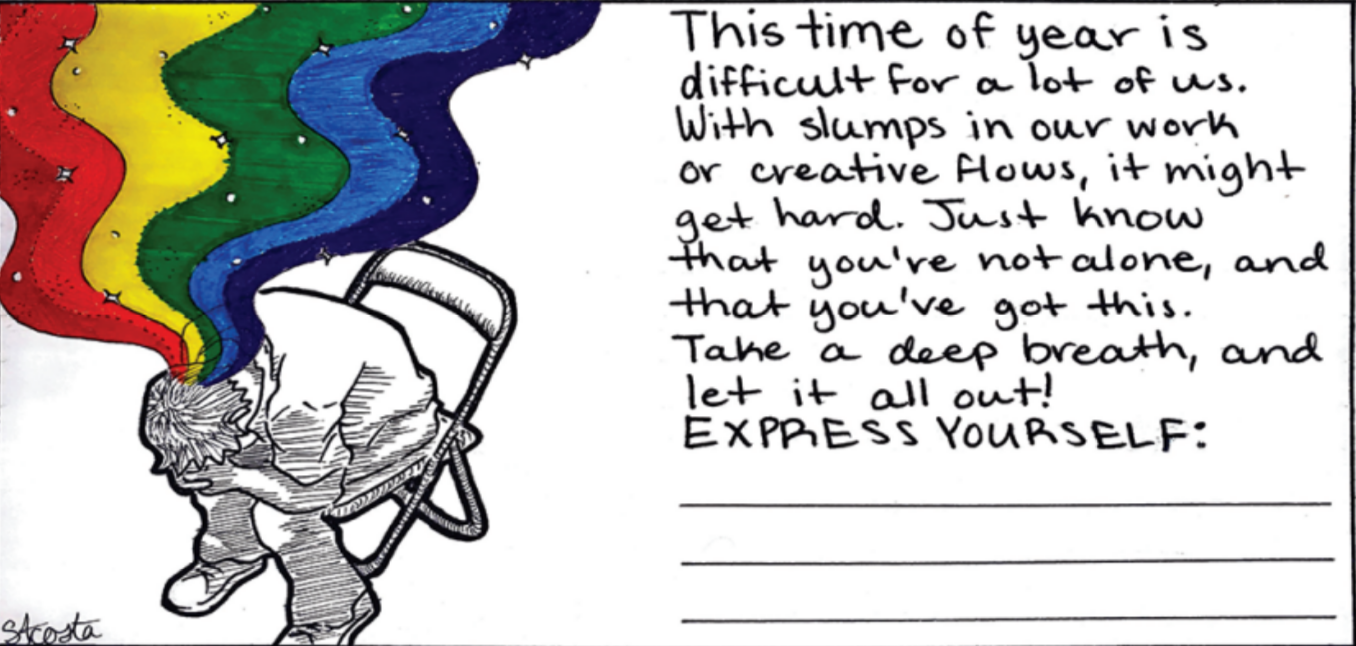 This time of year is
difficult for a lot of us.
With slumps in our work
or creative flows, it might
get hard. Just know
that you're not alone, and
that you've got this.
Take a deep breath, and
let it all out!
EXPRESS YOURSELF:
SAcosta